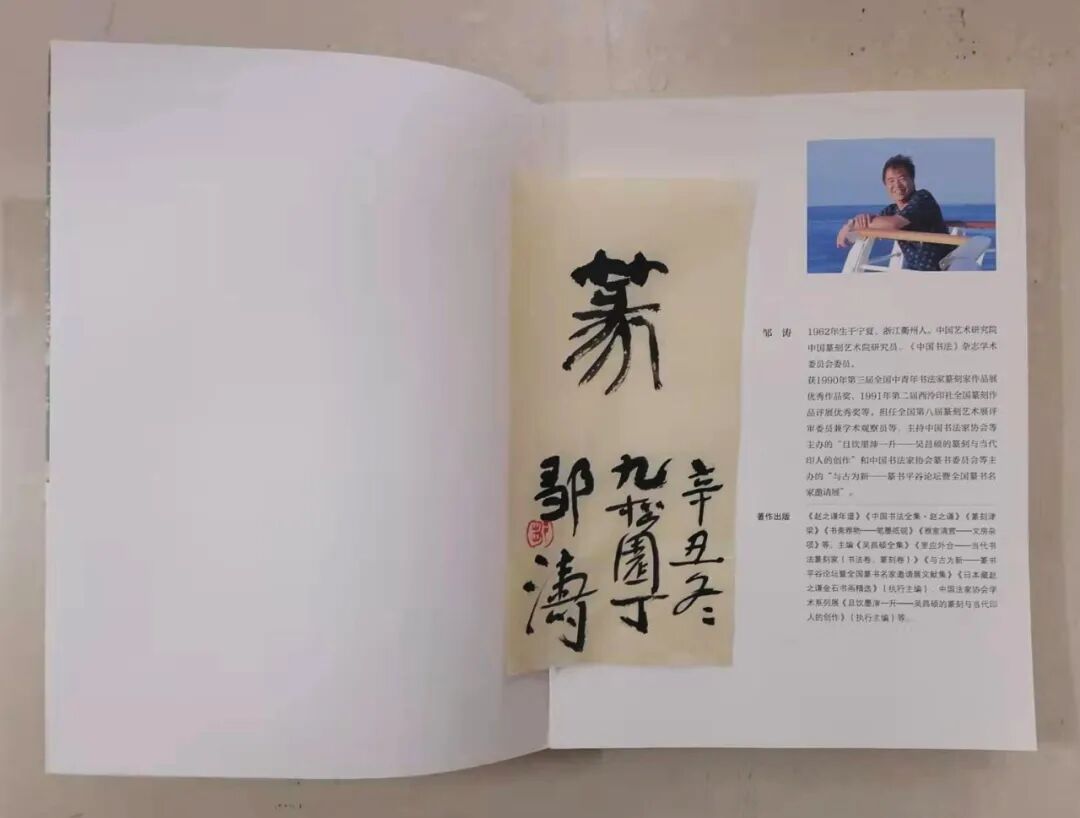 篆
辛丑冬
九松園丁
鄒濤
邹 涛
1962年生于宁夏，浙江衢州人。中国艺术研究院
中国篆刻艺术院研究员、《中国书法》杂志学术
委员会委员。
获1990年第三届全国中青年书法家篆刻家作品展
优秀作品奖、1991年第二届西泠印社全国篆刻作
品评展优秀奖等。担任全国第八届篆刻艺术展评
审委员兼学术观察员等。主持中国书法家协会等
主办的“且饮墨渖一升——吴昌硕的篆刻与当代
印人的创作”和中国书法家协会篆书委员会等主
办的“与古为新——篆书平谷论坛暨全国篆书名
家邀请展”。
著作出版
《赵之谦年谱》《中国书法全集·赵之谦》《篆刻津
梁》《书斋雅物——笔墨纸砚》《雅室清赏——文房杂
项》等。主编《吴昌硕全集》《里应外合——当代书
法篆刻家（书法卷、篆刻卷）》《与古为新——篆书
平谷论坛暨全国篆书名家邀请展文献集》《日本藏赵
之谦金石书画精选》（执行主编）、中国书法家协会学
术系列展《且饮墨渖一升——吴昌硕的篆刻与当代印
人的创作》（执行主编）等。